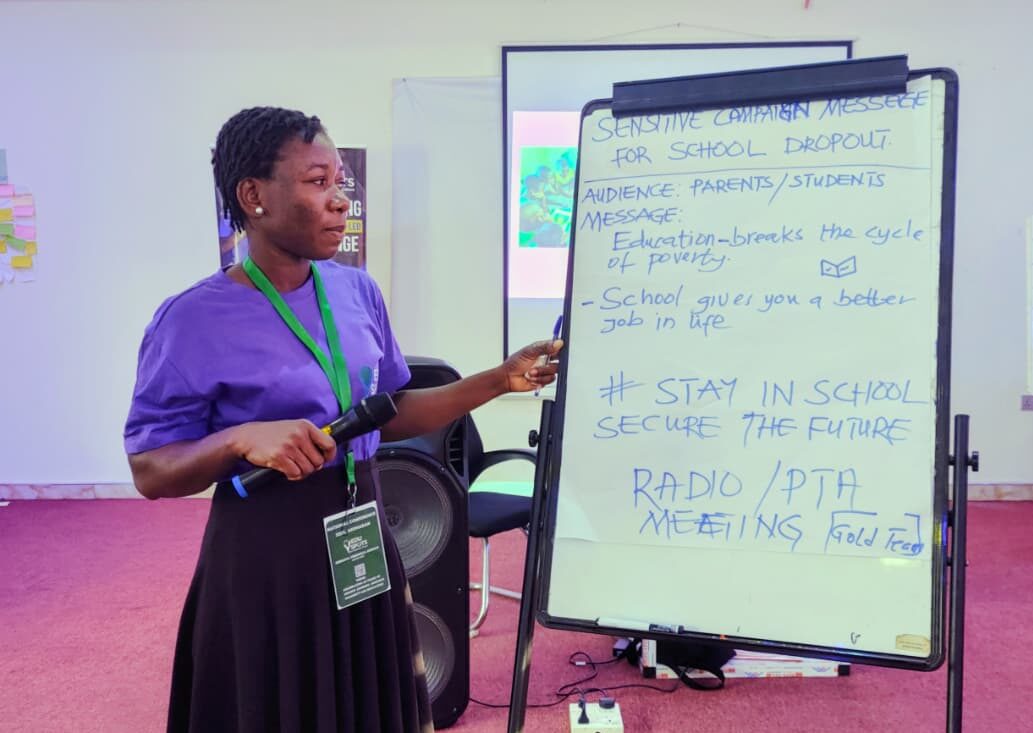 SENSITIVE CAMPAIGN MESSEGE
FOR SCHOOL DROPOUT.
AUDIENCE: PARENTS/STUDENTS
MESSAGE:
Education-breaks the cycle
of poverty.
- School gives you a better
job in life
# STAY IN SCHOOL
SECURE THE FUTURE
RADIO / PTA
MEETING [Gold Team]
NATIONAL CONFERENCE
EDU
SPOTS